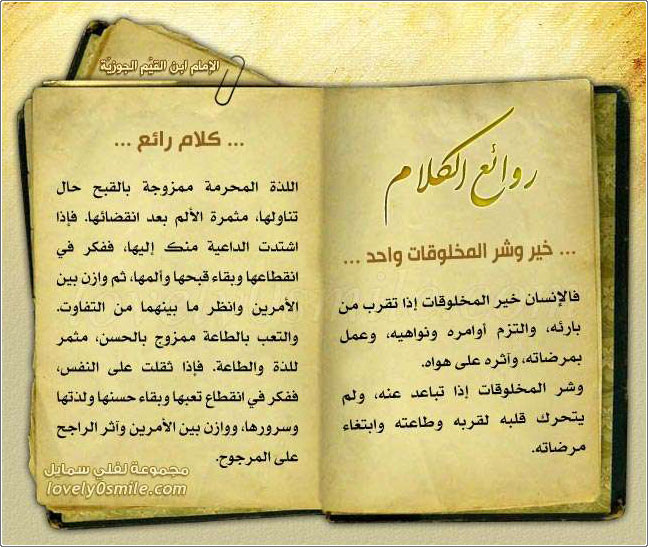 الإمام ابن القيّم الجوزيّة
روائع الكلام
... خير وشر المخلوقات واحد ...
فالإنسان خير المخلوقات إذا تقرب من
بارئه، والتزم أوامره ونواهيه، وعمل
بمرضاته، وآثره على هواه.
وشر المخلوقات إذا تباعد عنه، ولم
يتحرك قلبه لقربه وطاعته وابتغاء
مرضاته.
... كلام رائع ...
اللذة المحرمة ممزوجة بالقبح حال
تناولها، مثمرة الألم بعد انقضائها. فإذا
اشتدت الداعية منك إليها، ففكر في
انقطاعها وبقاء قبحها وألمها، ثم وازن بين
الأمرين وانظر ما بينهما من التفاوت.
والتعب بالطاعة ممزوج بالحسن، مثمر
للذة والطاعة. فإذا ثقلت على النفس،
ففكر في انقطاع تعبها وبقاء حسنها ولذتها
وسرورها، ووازن بين الأمرين وآثر الراجح
على المرجوح.
مجموعة لفلي سمايل
lovely0smile.com